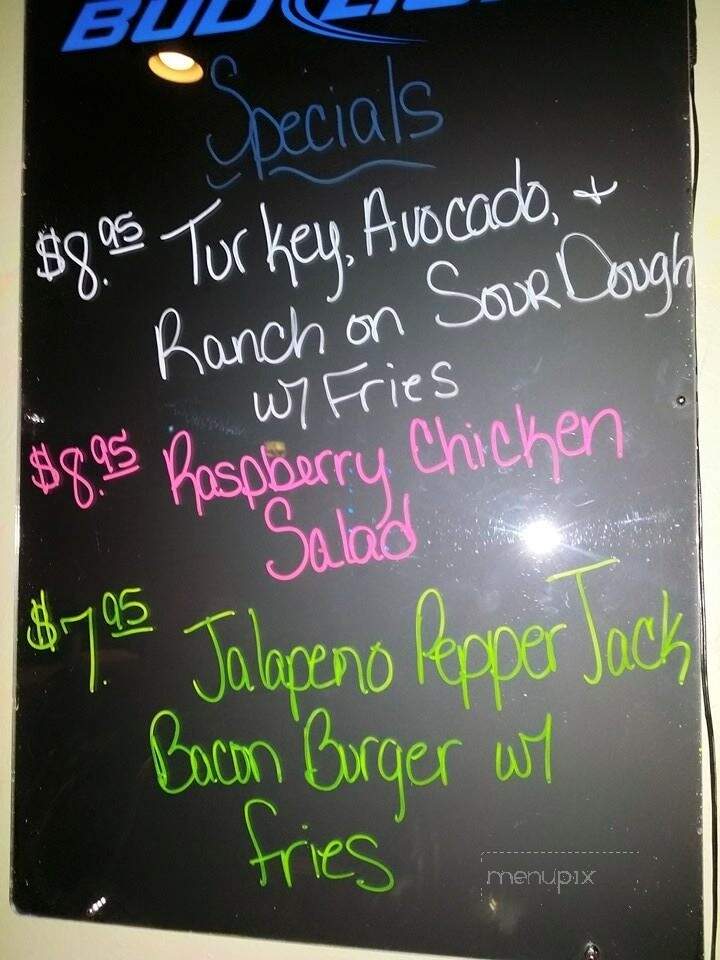 BUD
Specials
$8.95 Turkey, Avocado, +
Ranch on Sour Dough
w/ Fries
$8.95 Raspberry Chicken
Salad
$7.95 Jalapeno Pepper Jack
Bacon Burger w/
fries
menupix